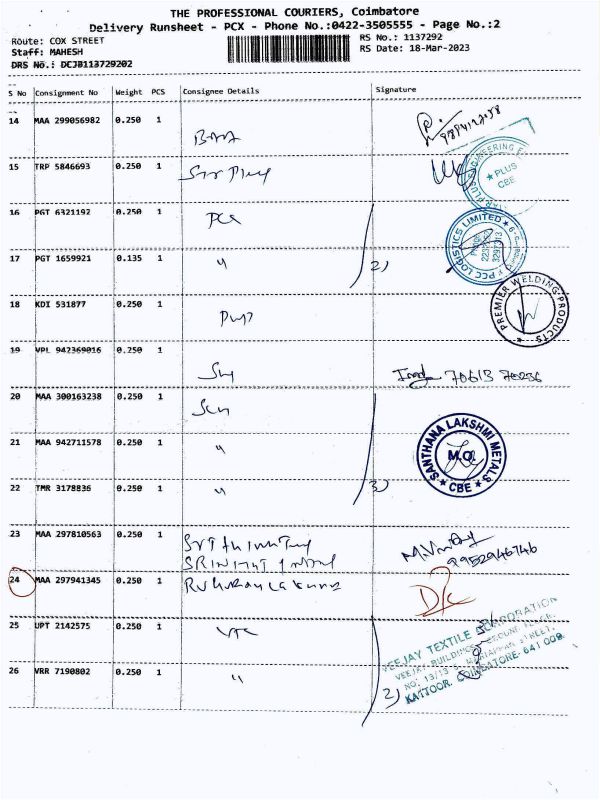 THE PROFESSIONAL COURIERS, Coimbatore
Delivery Runsheet - PCX - Phone No.:0422-3505555 - Page No.:2
Route: COX STREET
Staff: MAHESH
DRS No.: DCJB113729202
RS No.: 1137292
RS Date: 18-Mar-2023
S No Consignment No Weight PCS Consignee Details Signature
14 MAA 299056982 0.250 1
15 TRP 5846693 0.250 1
PLUS
CBE
16 PGT 6321192 0.250 1 PCC
PCC LOGISTICS LIMITED
17 PGT 1659921 0.135 1 " 2)
18 KDI 531877 0.250 1
PREMIER WELDING PRODUCTS
19 VPL 942369016 0.250 1
70613
20 MAA 300163238 0.250 1
21 MAA 942711578 0.250 1 "
SANTHANA LAKSHMI METALS
M.O.
CBE
22 TMR 3178836 0.250 1 " 3)
23 MAA 297810563 0.250 1
9952946746
24 MAA 297941345 0.250 1
D/c
25 UPT 2142575 0.250 1 VTC
VEEJAY TEXTILE CORPORATION
VEEJAY BUILDINGS
KATTOOR, COIMBATORE- 641 009.
26 VRR 7190802 0.250 1 " 2)